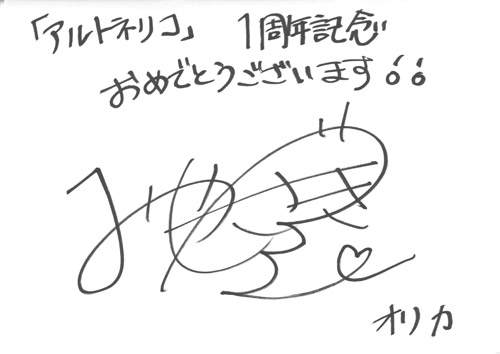 「アルトネリコ」 1周年記念
おめでとうございます!!
オリカ